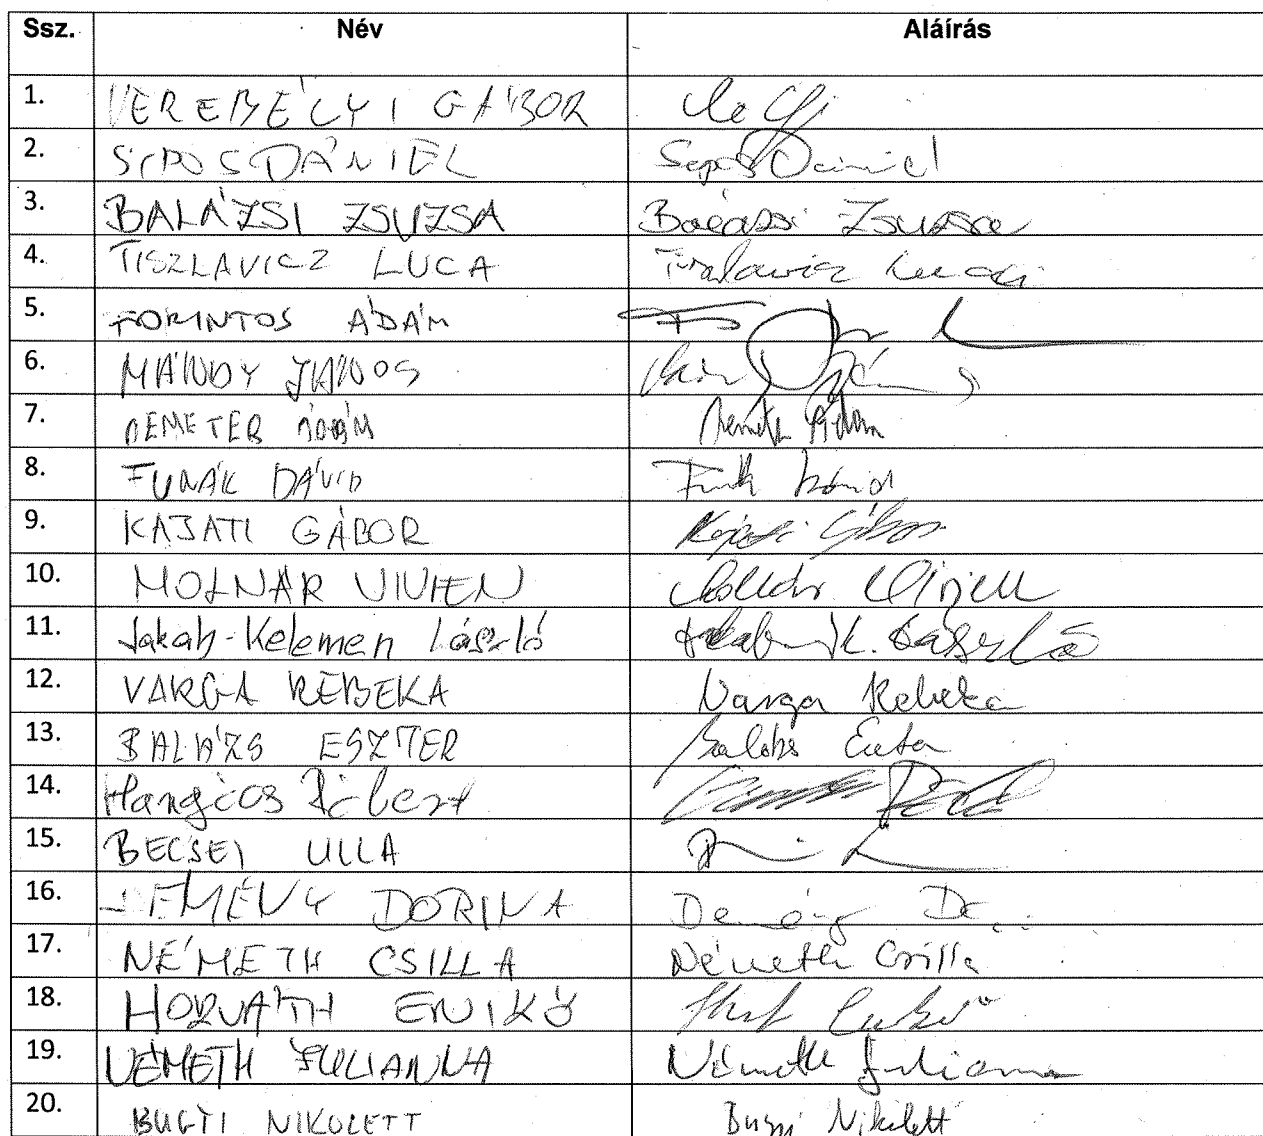 Ssz. Név Aláírás
1. VEREBÉLYI GÁBOR
2. SIPOS DÁNIEL Sipos Dániel
3. BALÁZSI ZSUZSA Balázsi Zsuzsa
4. TISZLAVICZ LUCA Tiszlavicz Luca
5. FORINTOS ÁDÁM
6. MÁNDY JÁNOS
7. DEMETER ÁDÁM Demeter Ádám
8. FUNÁK DÁVID Dávid
9. KAJATI GÁBOR Kajati Gábor
10. MOLNÁR VIVIEN Molnár Vivien
11. Jakab-Kelemen László Jakab-K. László
12. VARGA REBEKA Varga Rebeka
13. BALÁZS ESZTER Balázs Eszter
14. Róbert
15. BECSEI ULLA
16. DEMÉNY DORINA Demény
17. NÉMETH CSILLA Németh Csilla
18. HORVÁTH ENIKŐ Enikő
19. NÉMETH JULIANNA Németh Julianna
20. BUGYI NIKOLETT Bugyi Nikolett